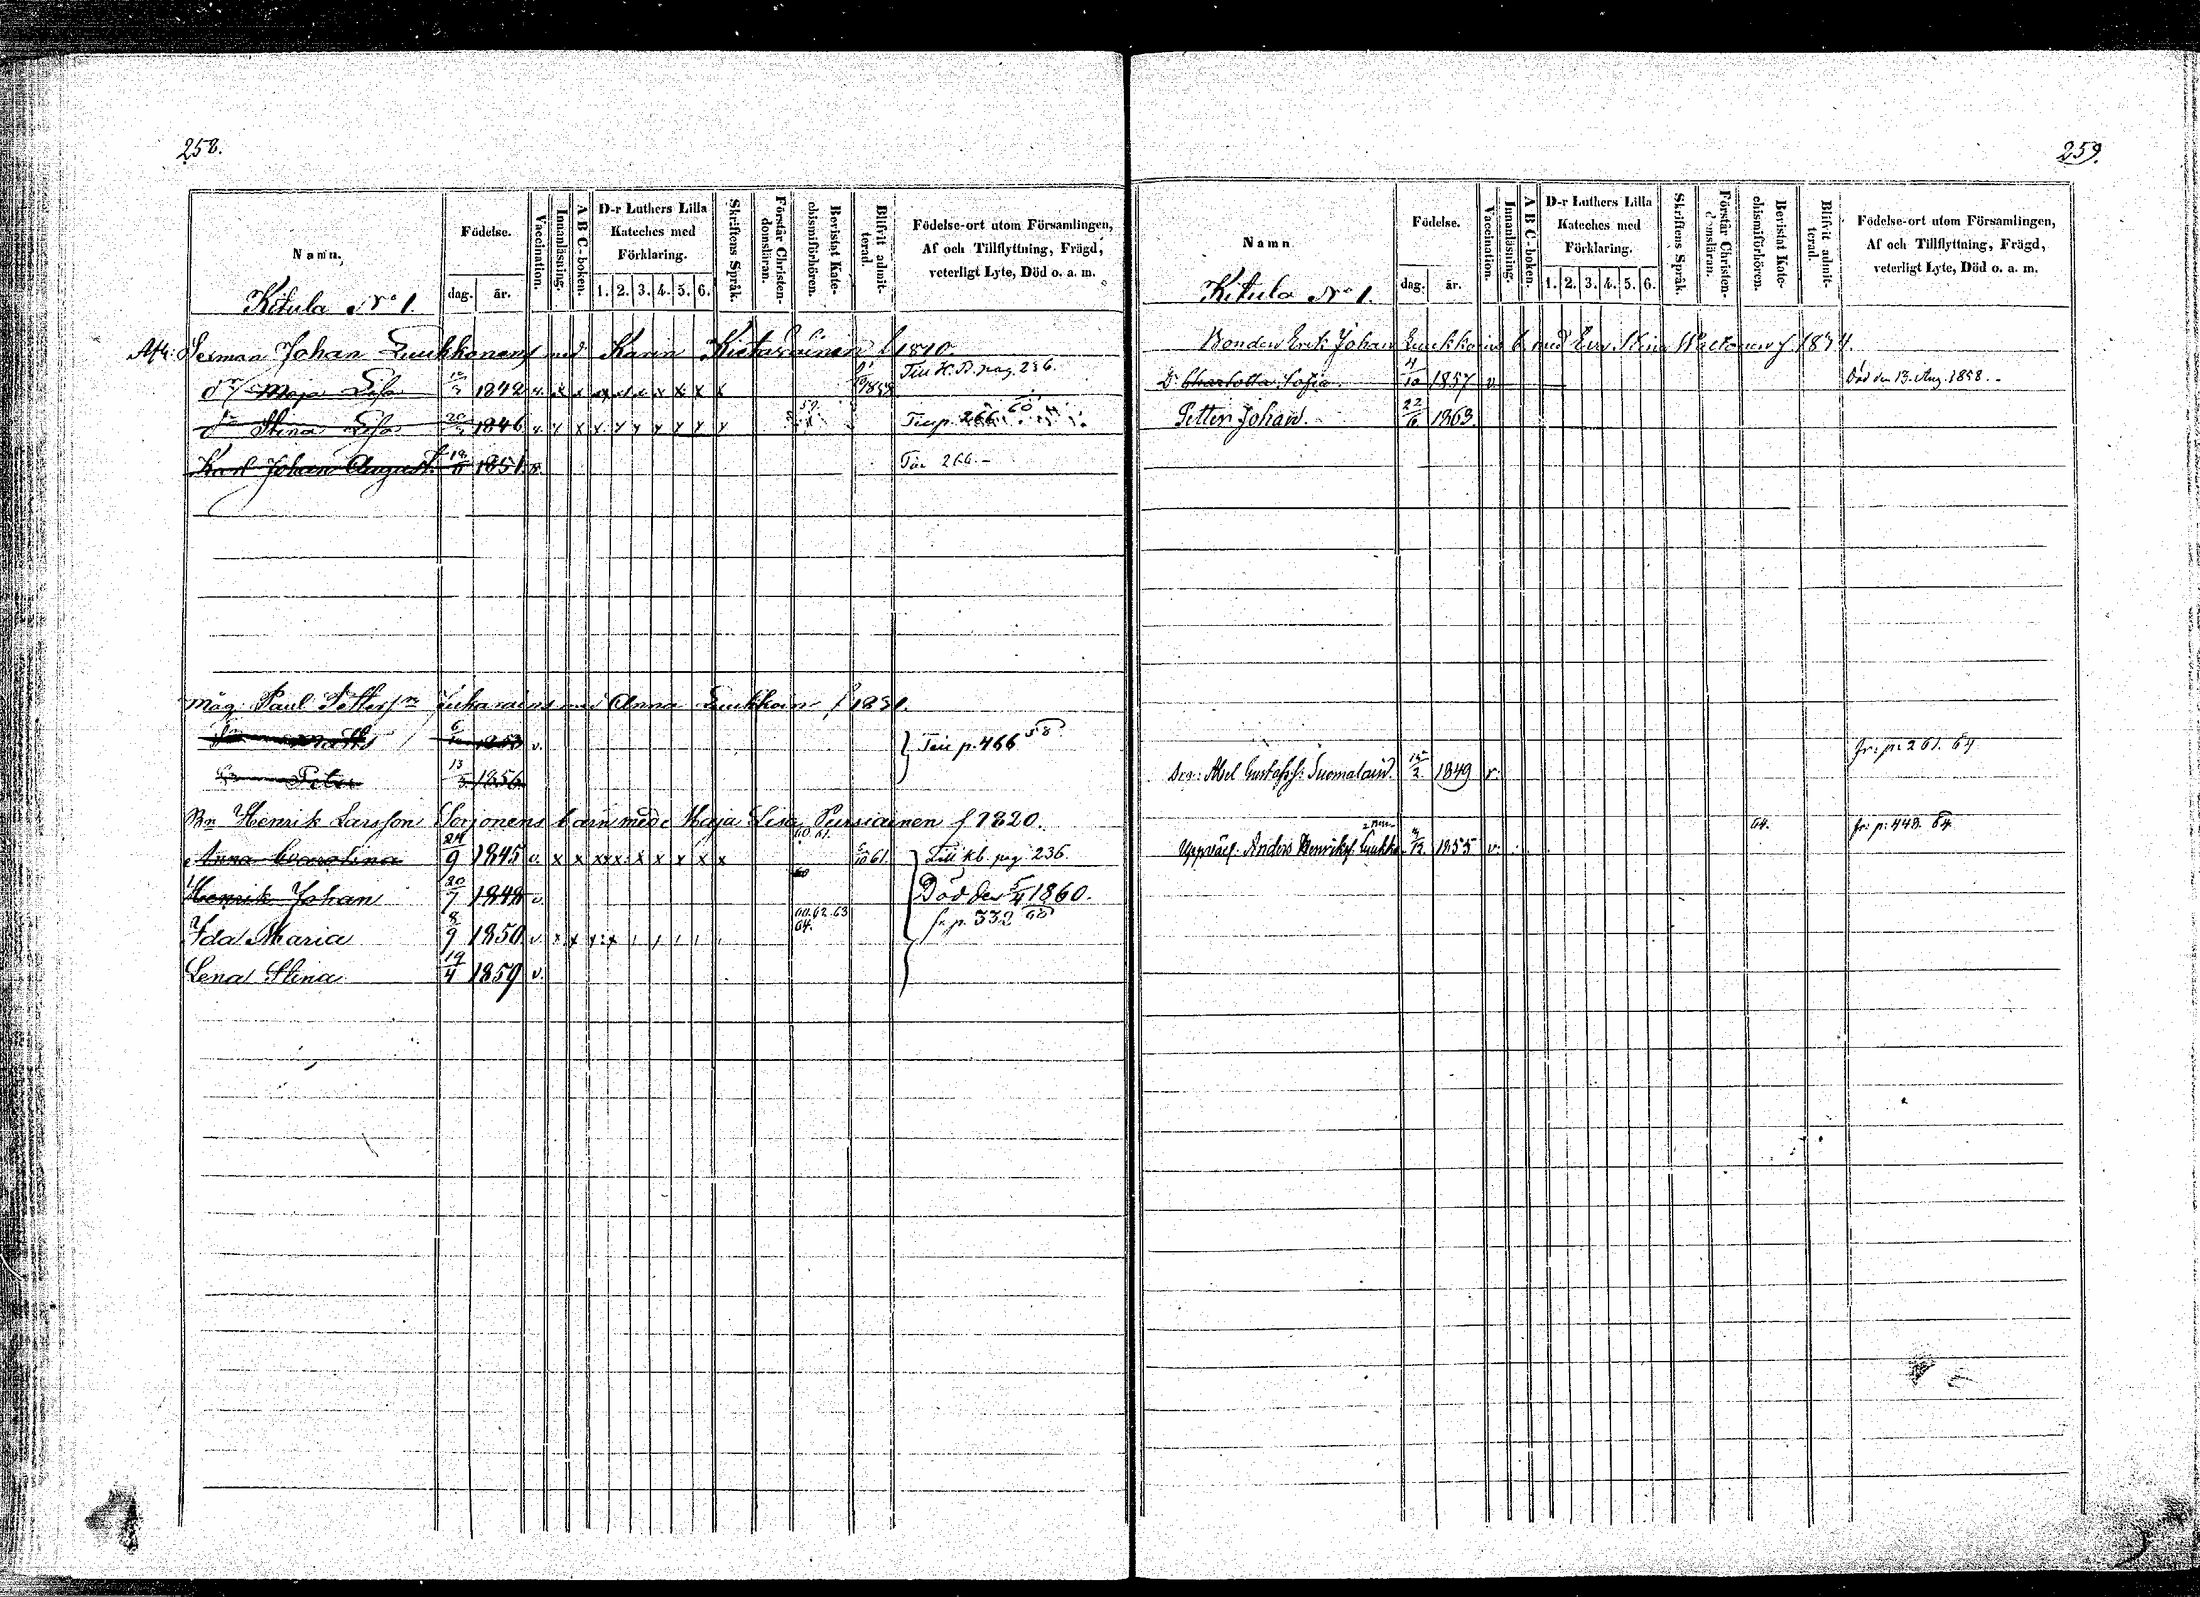 258.
Namn.
Födelse.
dag. år.
Vaccination.
Innanläsning.
A B C-boken.
D-r Luthers Lilla Kateches med Förklaring.
1. 2. 3. 4. 5. 6.
Skriftens Språk.
Förstår Christendomsläran.
Bevistat Katechismiförhören.
Blifvit admitterad.
Födelse-ort utom Församlingen, Af och Tillflyttning, Frägd, veterligt Lyte, Död o. a. m.
Kitula No 1.
Johan Luukkonens med Karin f 1810.
Maja Lisa 1842 v. x x x x x x x x 1858 Till K.B. pag. 236.
Stina Lisa 1846 v. x x x x x x x x x 59 Till p. 266 60
Karl Johan August 1851. v. 266.
Måg Paul Pettersn med Anna Luukkain f 1831.
6 1853 v. Till p. 466 58
Peter 13/3 1856
Bn Henrik Larsson Sorjonens barn med Maja Lisa Pursiainen f 1820.
Anna Carolina 24/9 1845 v. x x x x x x x x x 60. 61. 61. Till kb. pag 236.
Henrik Johan 20/7 1848 v. 60 Död den 5/4 1860.
Ida Maria 8/9 1850 v. x x x x 60. 62. 63 64. fr. p. 332 60
Lena Stina 19/4 1859 v.
259.
Namn
Födelse.
dag. år.
Vaccination.
Innanläsning.
A B C-boken.
D-r Luthers Lilla Kateches med Förklaring.
1. 2. 3. 4. 5. 6.
Skriftens Språk.
Förstår Christendomsläran.
Bevistat Katechismiförhören.
Blifvit admitterad.
Födelse-ort utom Församlingen, Af och Tillflyttning, Frägd, veterligt Lyte, Död o. a. m.
Kitula No 1.
Bonden Erik Johan b. med Eva Stina f. 1834.
Dr Charlotta Sofia 4/10 1857 v. Död den 13. Aug. 1858.
Petter Johan. 22/6 1863.
fr: p: 261. 64
Abel Gustafsf: Suomalain. 1849 v.
64. fr: p: 448. 64
Anders Henriksf. 1855 v.